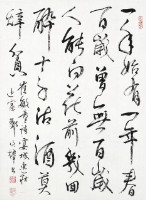 一年始有一年春
百歲曾無百歲
人能向花前幾回
醉十千沽酒莫
辭貧
崔敏童詩宴城東莊